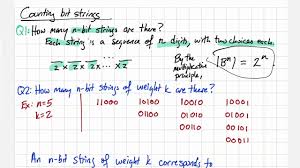 Counting bit strings
Q1: How many n-bit strings are there?
Each string is a sequence of n digits, with two choices each.
2 x 2 x 2 x ... x 2
By the multiplicative principle,
|Bⁿ| = 2ⁿ
Q2: How many n-bit strings of weight k are there?
Ex: n=5 11000 10100 10010 10001
k=2 01100 01010 01001
00110 00101
00011
An n-bit string of weight k corresponds to